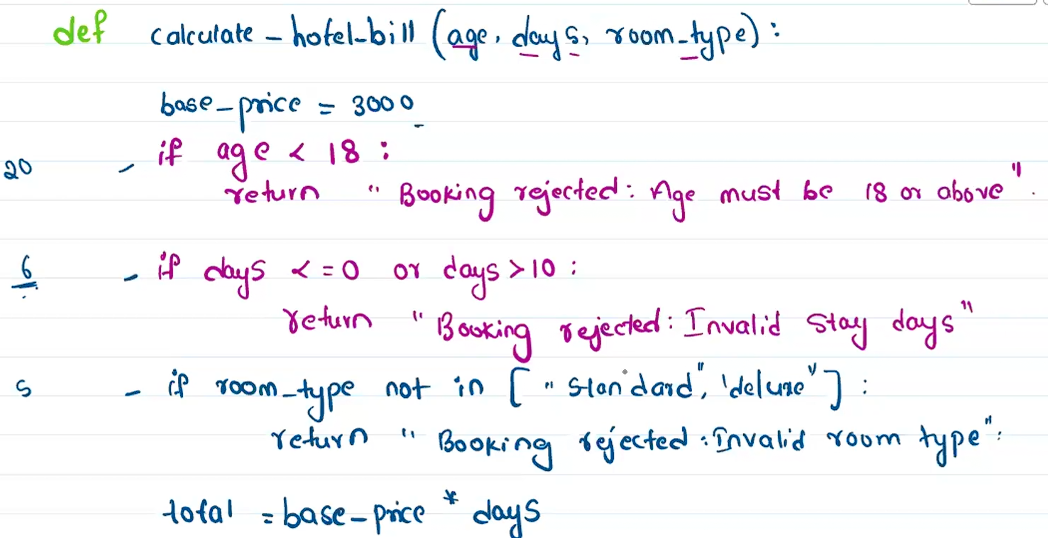 def calculate-hotel-bill (age, days, room_type) :
base-price = 3000
20 - if age < 18 :
return " Booking rejected: Age must be 18 or above".
6 - if days <= 0 or days > 10 :
return " Booking rejected: Invalid Stay days"
S - if room_type not in [ "standard", 'deluxe" ] :
return " Booking rejected: Invalid room type".
total = base-price * days